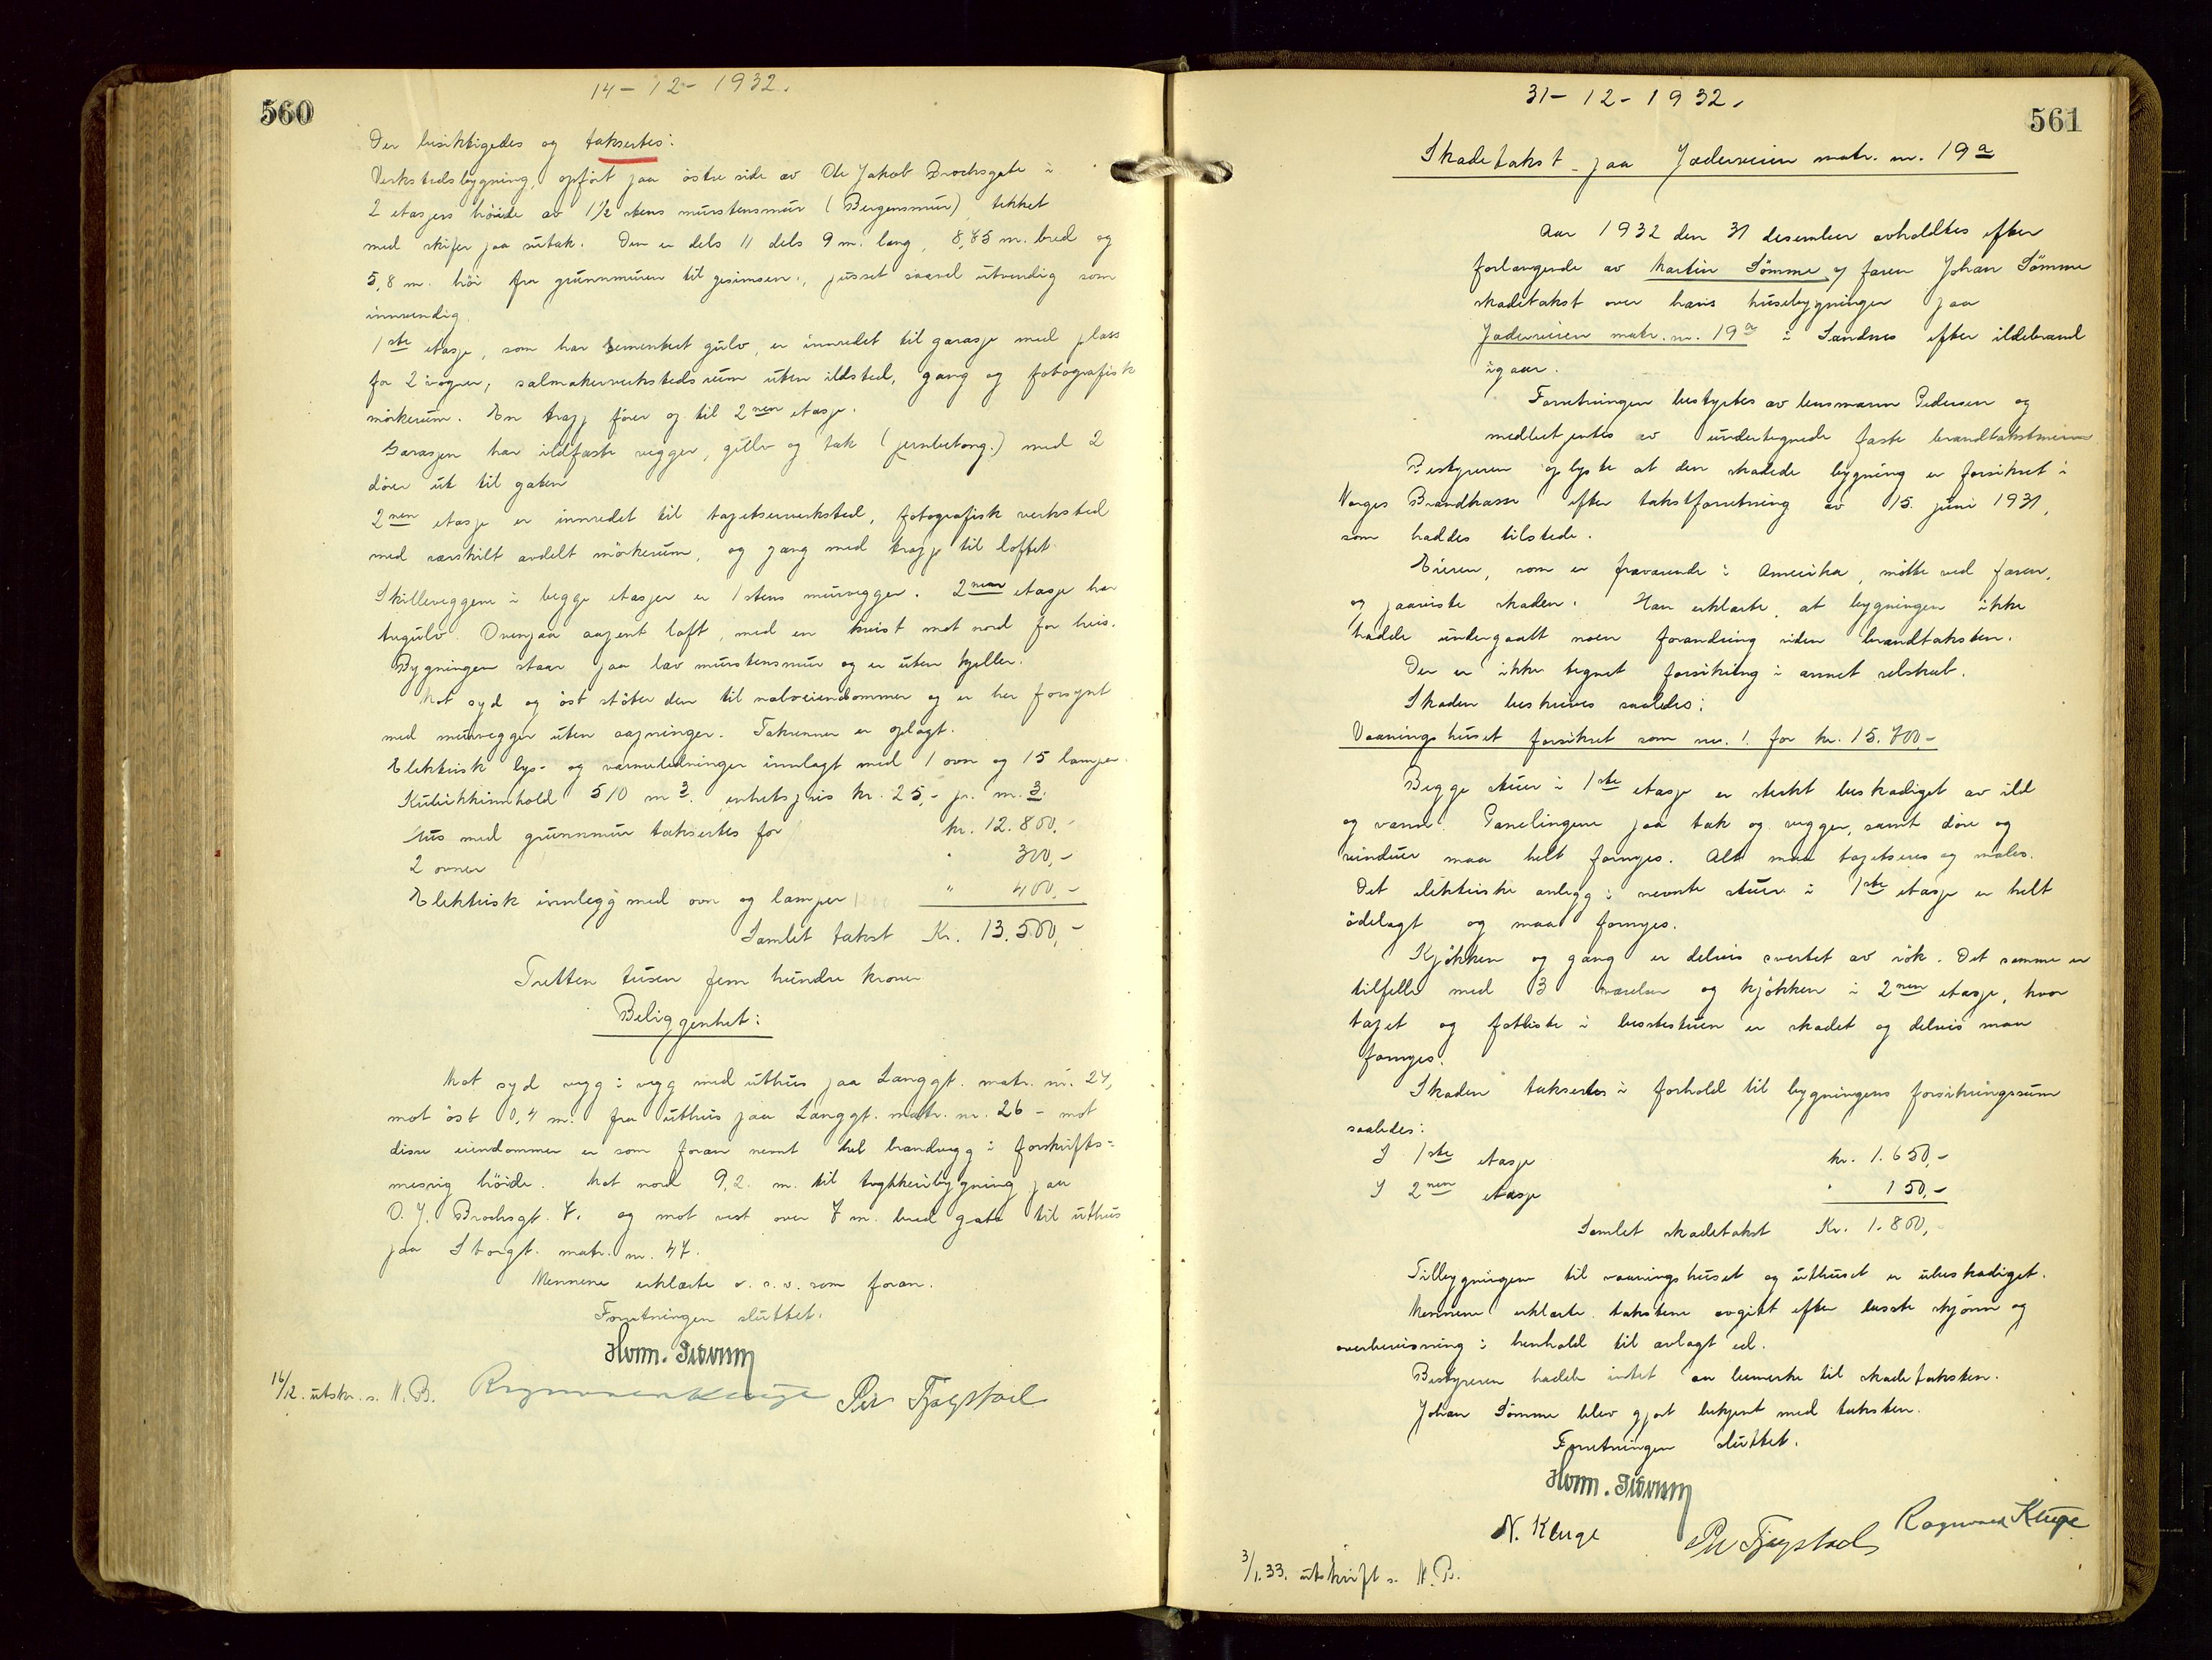 560
14 - 12 - 1932.
Der besiktigedes og taksertes:
Verkstedsbygning, opført paa østre side av Ole Jakob Brochsgate i
2 etasjers høide av 1½ stens murstensmur (Bergensmur), tekket
med skifer paa sutak. Den er dels 11 dels 9 m. lang, 8,85 m. bred og
5,8 m. høi fra grunnmuren til gesimsen, pusset saavel utvendig som
innvendig.
1ste etasje, som har sementert gulv, er innredet til garasje med plass
for 2 vogner, salmakerverkstedsrum uten ildsted, gang og fotografisk
mørkerum. En trapp fører op til 2nen etasje.
Garasjen har ildfaste vegger, gulv og tak (jernbetong.) med 2
dører ut til gaten
2nen etasje er innredet til tapetserverksted, fotografisk verksted
med særskilt avdelt mørkerum, og gang med trapp til loftet.
Skilleveggene i begge etasjer er 1 stens murvegger. 2nen etasje har
tregulv. Ovenpaa aapent loft, med en kvist mot nord for heis.
Bygningen staar paa lav murstensmur og er uten kjeller.
Mot syd og øst støter den til naboeiendommer og er her forsynt
med murvegger uten aapninger. Takrenner er oplagt.
Elektrisk lys- og varmeledninger innlagt med 1 ovn og 15 lamper.
Kubikkinnhold 510 m3. enhetspris kr. 25,- pr. m.3.
Hus med grunnmur taksertes for kr. 12.800.-
2 ovner " 300,-
Elektrisk innlegg med ovn og lamper " 400,-
Samlet takst Kr. 13.500,-
Tretten tusen fem hundre kroner
Beliggenhet:
Mot syd vegg i vegg med uthus paa Langgt. matr. nr. 24,
mot øst 0,4 m. fra uthus paa Langgt. matr. nr. 26 - mot
disse eiendommer er som foran nevnt hel brandvegg i forskrifts-
messig høide. Mot nord 9,2. m. til trykkeribygning paa
O. J. Brochsgt. 7. og mot vest over 7 m. bred gate til uthus
paa Storgt. matr. nr. 47.
Mennene erklærte o. s. v. som foran.
Forretningen sluttet.
16/12. utskr. s. N. B. Ragnvald Kluge Per Fjogstad
561
31 - 12 - 1932.
Skadetakst paa Jæderveien matr. nr. 19a
Aar 1932 den 31 desember avholdtes efter
forlangende av Martin Sømme v/ faren Johan Sømme
skadetakst over hans husebygninger paa
Jæderveien matr. nr. 19a i Sandnes efter ildebrand
igaar.
Forretningen bestyrtes av lensmann Pedersen og
medbetjentes av undertegnede faste brandtakstmenn
Bestyreren oplyste at den skadede bygning er forsikret i
Norges Brandkasse efter takstforretning av 15. juni 1931,
som haddes tilstede.
Eieren, som er fraværende i Amerika, møtte ved faren,
og paaviste skaden. Han erklærte, at bygningen ikke
hadde undergaatt noen forandring siden brandtaksten.
Der er ikke tegnet forsikring i annet selskab.
Skaden beskrives saaledes:
Vaaningshuset forsikret som nr. 1. for kr. 15.700.-
Begge stuer i 1ste etasje er sterkt beskadiget av ild
og vann. Panelingene paa tak og vegger, samt døre og
vinduer maa helt fornyes. Alt maa tapetseres og males.
Det elektriske anlegg i nevnte stuer i 1ste etasje er helt
ødelagt og maa fornyes.
Kjøkken og gang er delvis svertet av røk. Det samme er
tilfelle med 3 værelser og kjøkken i 2nen etasje, hvor
tapet og fotliste i bestestuen er skadet og delvis maa
fornyes.
Skaden taksertes i forhold til bygningens forsikringssum
saaledes:
I 1ste etasje kr. 1.650,-
I 2nen etasje " 150,-
Samlet skadetakst Kr. 1.800,-
Tilbygningen til vaaningshuset og uthuset er ubeskadiget.
Mennene erklærte takstene avgitt efter beste skjønn og
overbevisning i henhold til avlagt ed.
Bestyreren hadde intet aa bemerke til skadetaksten.
Johan Sømme blev gjort bekjent med taksten.
Forretningen sluttet.
N. Kluge Per Fjogstad Ragnvald Kluge
3/1.33. utskrift s. N. B.